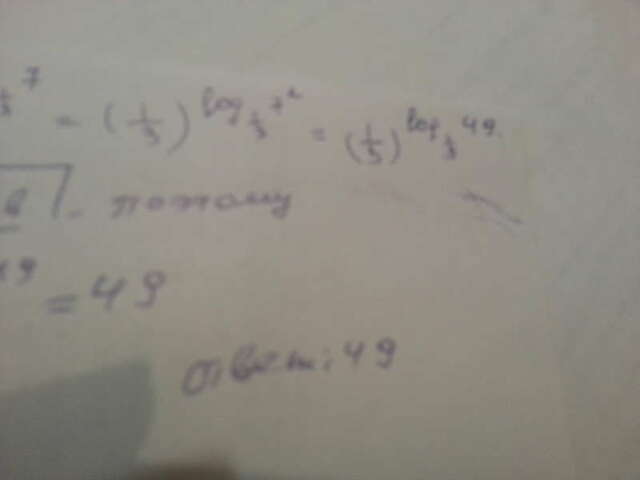 7 = (1/3)^log_{1/3} 7² = (1/3)^log_{1/3} 49.
в - потому
49 = 49
Ответ: 49